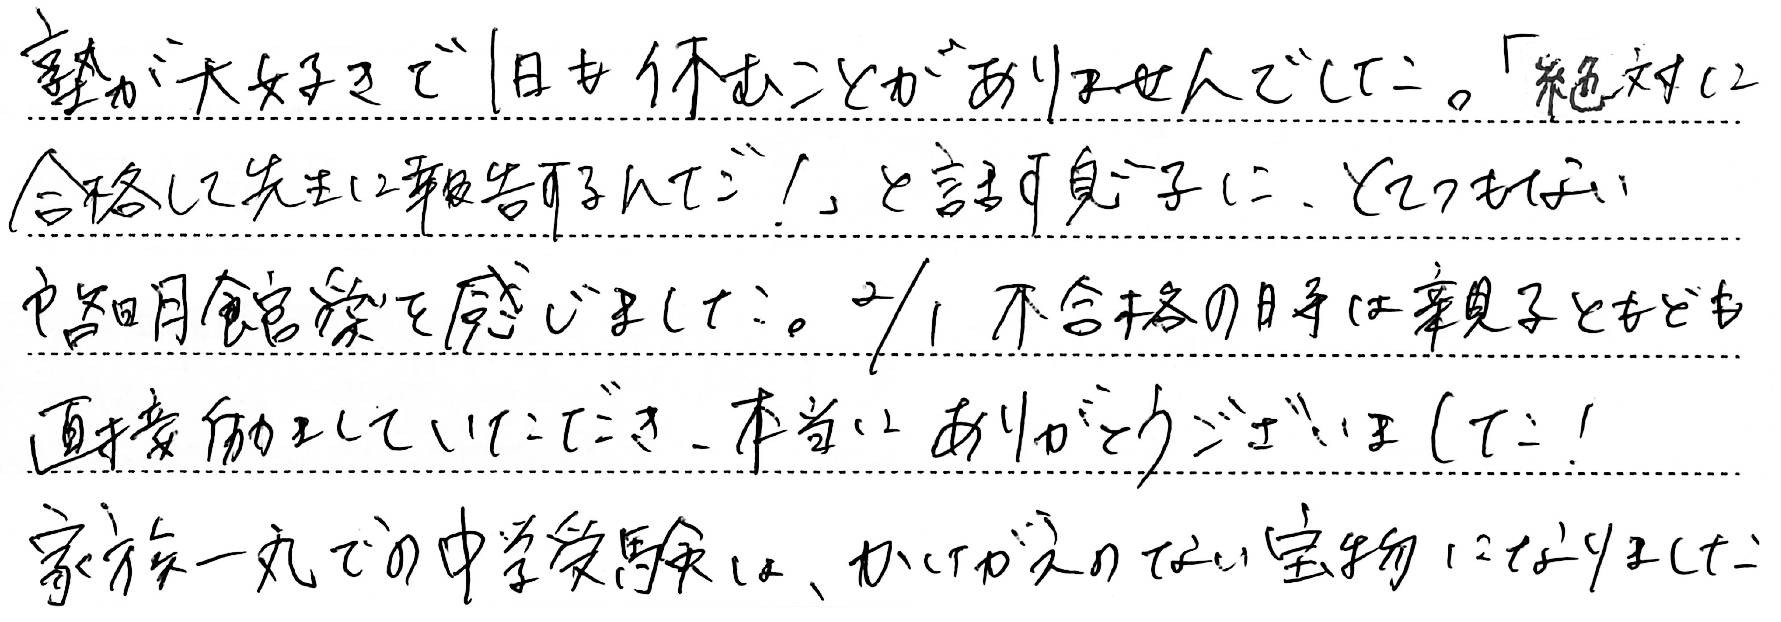 塾が大好きで1日も休むことがありませんでした。「絶対に
合格して先生に報告するんだ!」と話す息子に、とてつもない
啓明館愛を感じました。2/1 不合格の時は親子ともども
直接励ましていただき、本当にありがとうございました!
家族一丸での中学受験は、かけがえのない宝物になりました